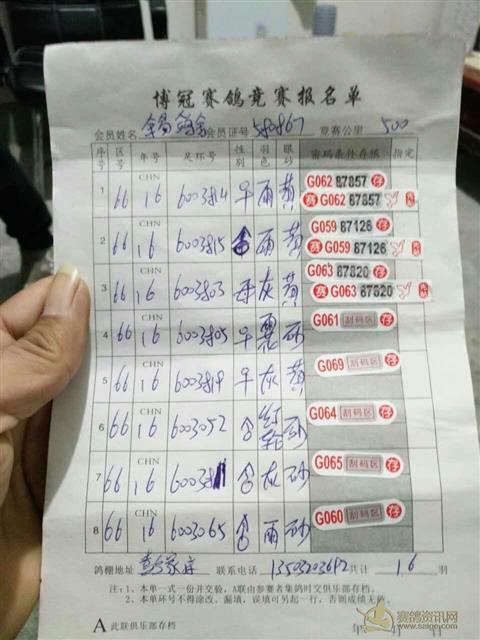 博冠赛鸽竞赛报名单
会员姓名 会员证号 580867 竞赛公里 500
序号 区号 年号 足环号 性别 羽色 眼砂 密码条件存根 指定
1 66 CHN 16 雨 黄 G062 87857 存
赛 G062 87857
2 66 16 雨 黄 G059 87126 存
赛 G059 87126
3 66 CHN 16 6003803 灰 黄 G063 87820 存
赛 G063 87820
4 66 CHN 16 6003805 砂 G061 刮码区 存
5 66 CHN 16 灰 黄 G069 刮码区 存
6 66 CHN 16 6003052 红轮 砂 G064 刮码区 存
7 66 CHN 16 灰 砂 G065 刮码区 存
8 66 CHN 16 6003065 雨 砂 G060 刮码区 存
鸽棚地址 联系电话 13503203692 共计 16 羽
注:1、本单一式一份并交验,A联由参赛者集鸽时交俱乐部存档。
2、本单环号不得涂改、漏填,误填可另起一行,否则成绩无效。
A 此联俱乐部存档 年 月 日
赛鸽资讯网
www.saige.com